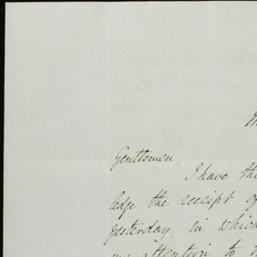 Gentlemen,
I have the
ledge the receipt of
yesterday, in which
my attention to